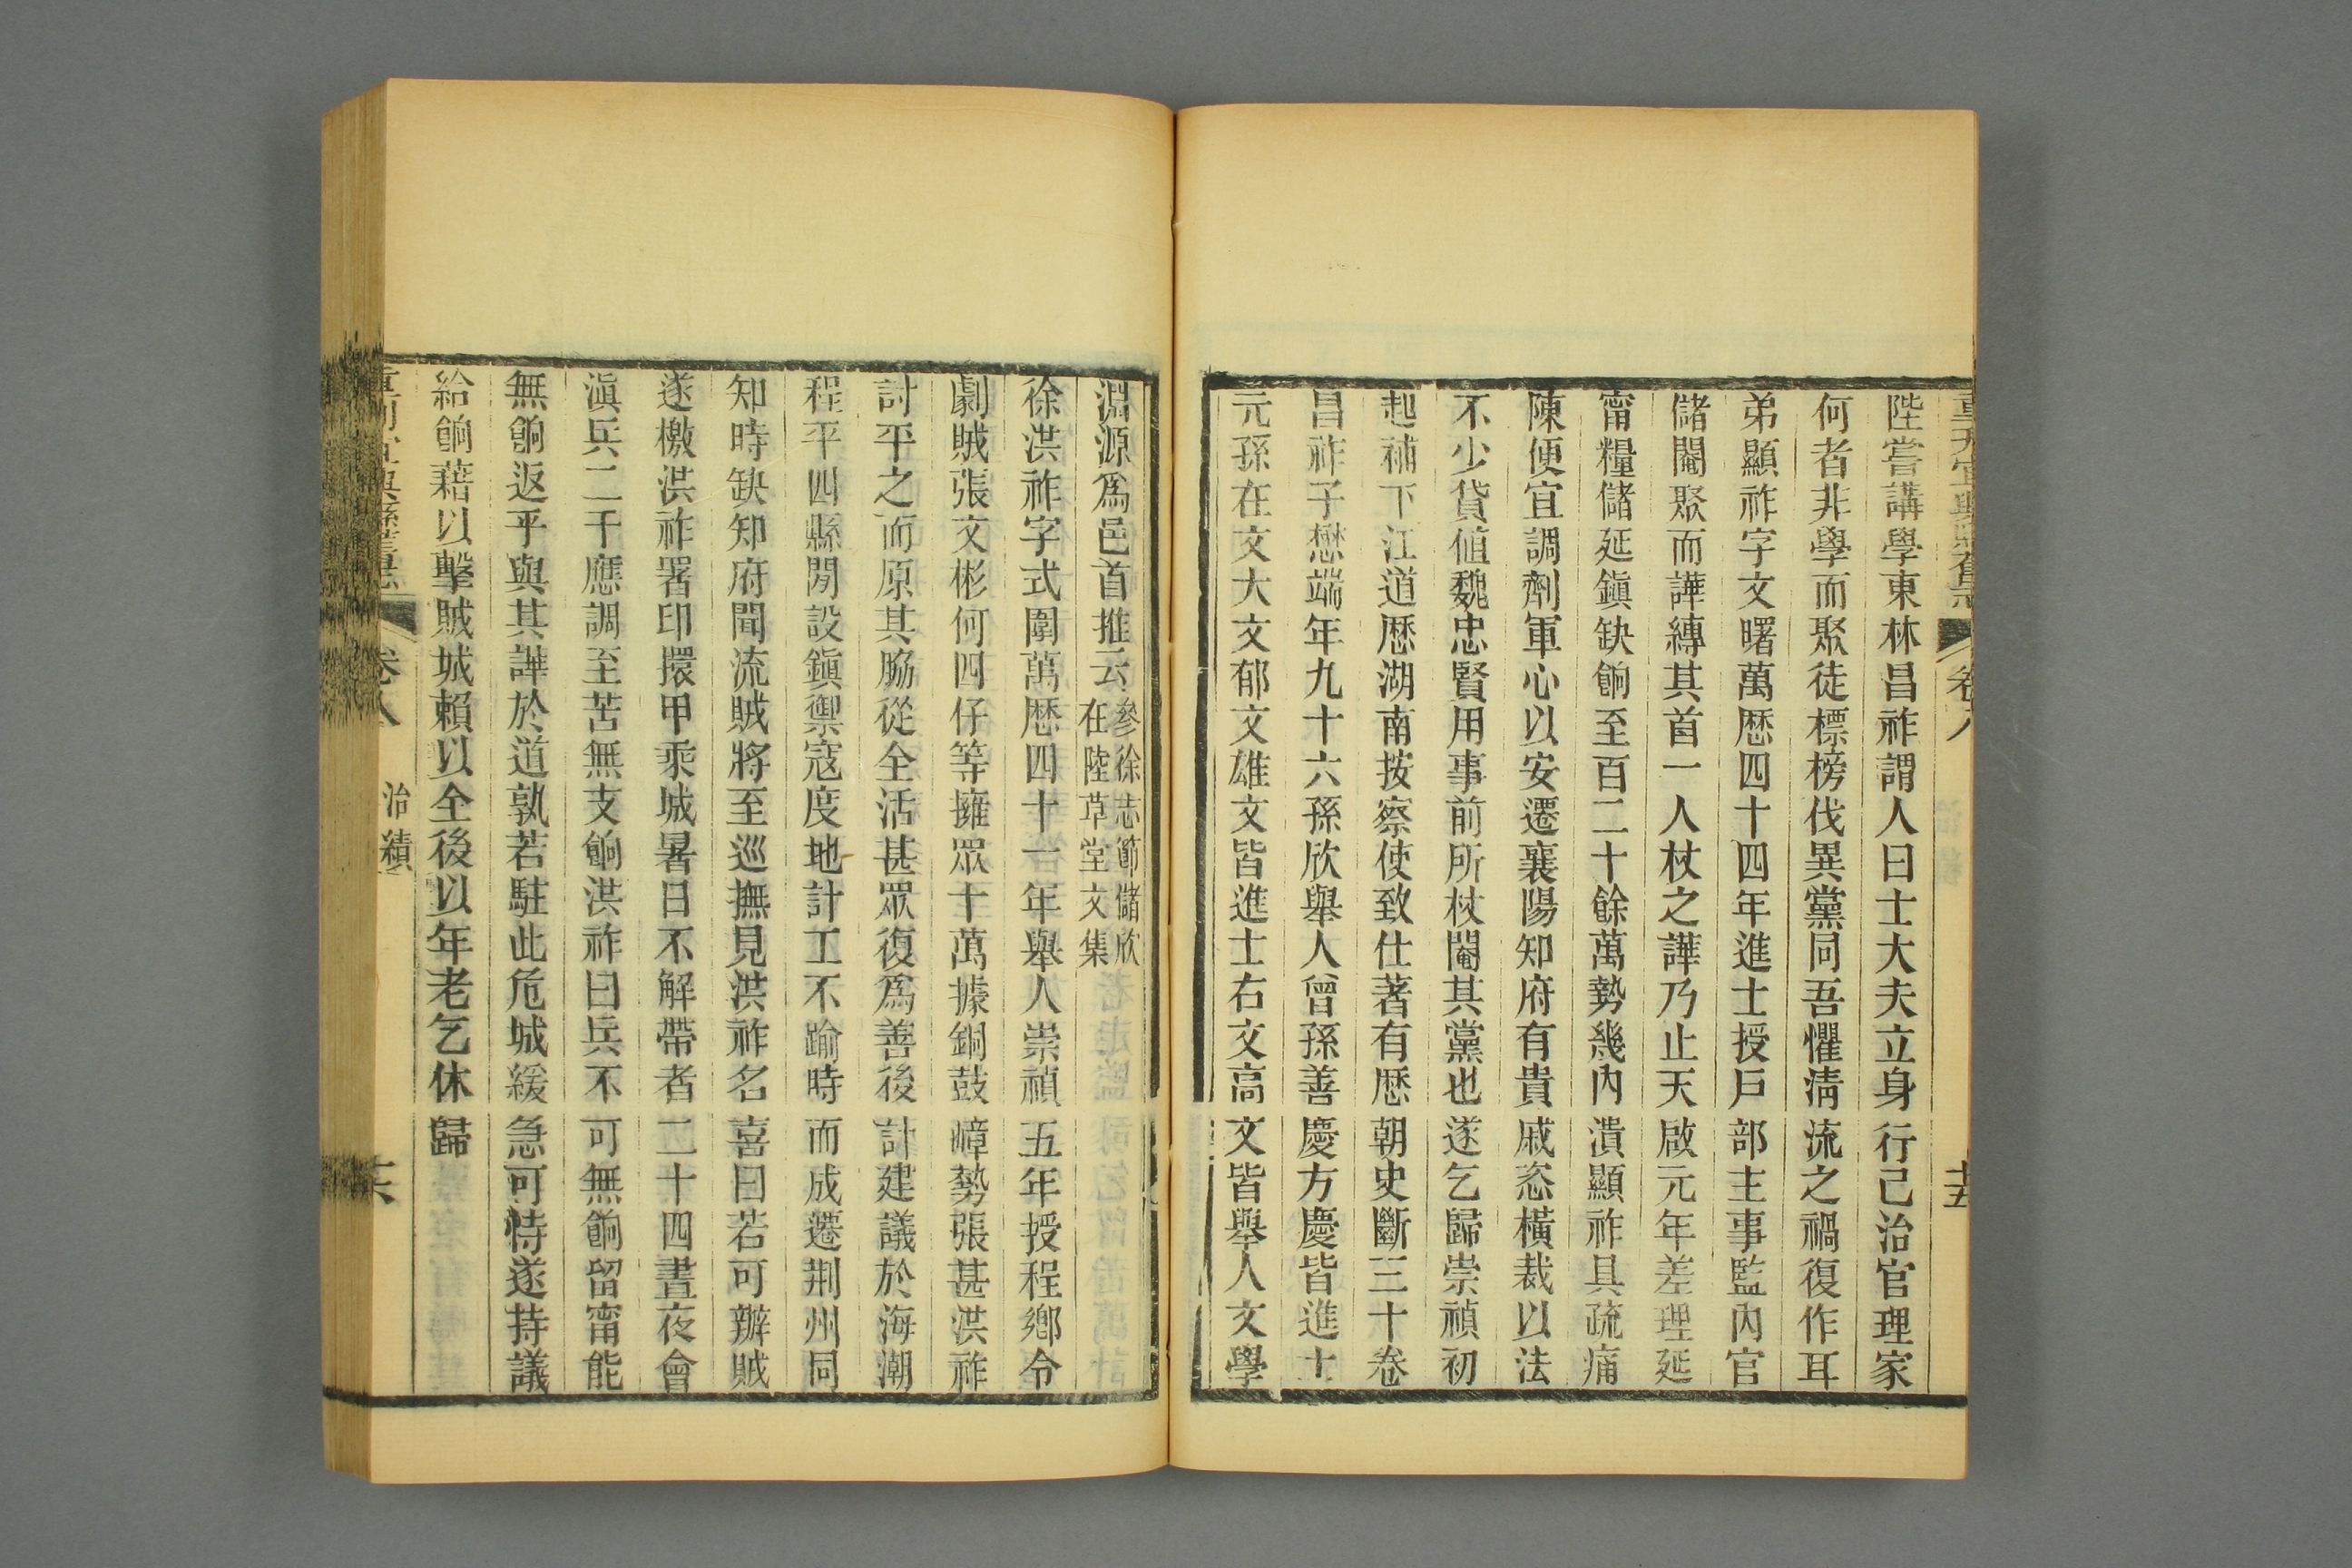 重刋宜興縣舊志 卷八 十五
陛嘗講學東林昌祚謂人曰士大夫立身行己治官理家
何者非學而聚徒標榜伐異黨同吾懼淸流之禍復作耳
弟顯祚字文曙萬歴四十四年進士授戶部主事監內官
儲閹聚而譁縛其首一人杖之譁乃止天啟元年差理延
甯糧儲延鎭缺餉至百二十餘萬勢幾內潰顯祚具疏痛
陳便宜調劑軍心以安遷襄陽知府有貴戚恣橫裁以法
不少貸値魏忠賢用事前所杖閹其黨也遂乞歸崇禎初
起補下江道歴湖南按察使致仕著有歴朝史斷三十卷
昌祚子懋端年九十六孫欣舉人曾孫善慶方慶皆進士
元孫在文大文郁文雄文皆進士右文高文皆舉人文學
淵源爲邑首推云參徐志節儲欣
在陸草堂文集
徐洪祚字式圍萬歴四十一年舉人崇禎五年授程鄕令
劇賊張文彬何四仔等擁眾十萬據銅鼓嶂勢張甚洪祚
討平之而原其脇從全活甚眾復爲善後計建議於海潮
程平四縣閒設鎭禦寇度地計工不踰時而成遷荆州同
知時缺知府聞流賊將至巡撫見洪祚名喜曰若可辦賊
遂檄洪祚署印擐甲乘城暑日不解帶者二十四晝夜會
滇兵二千應調至苦無支餉洪祚曰兵不可無餉留甯能
無餉返乎與其譁於道孰若駐此危城緩急可恃遂持議
給餉藉以擊賊城賴以全後以年老乞休歸
重刋宜興縣舊志 卷八 治績 十六